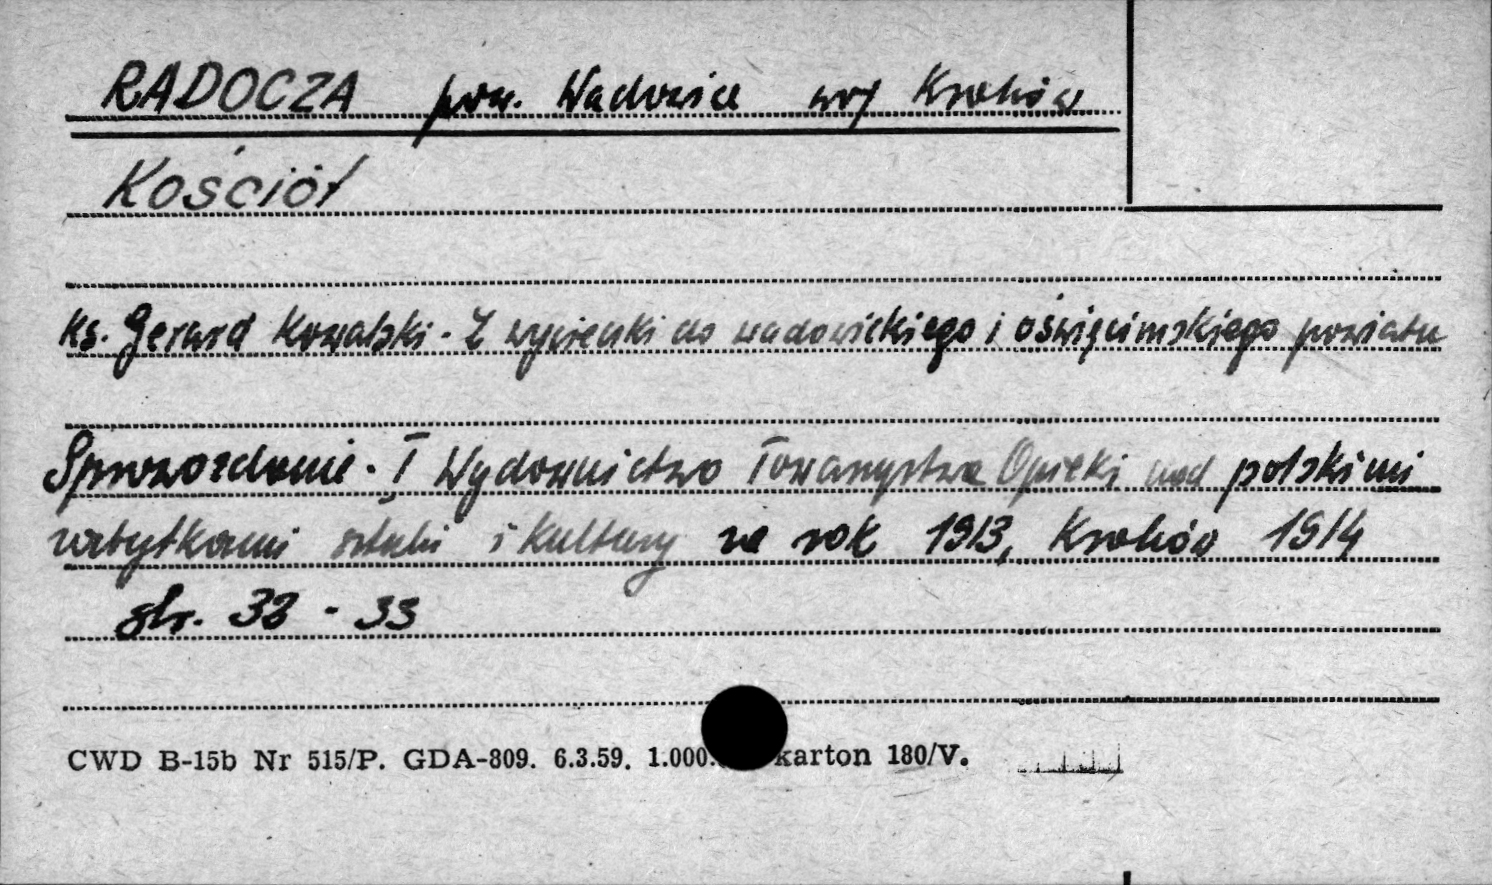 RADOCZA pow. Wadowice woj Kraków
Kościół
Ks. Gerard Kowalski - Z wycieczki do wadowickiego i oświęcimskiego powiatu
Sprawozdanie. I Wydawnictwo Towarzystwa Opieki nad polskimi
zabytkami sztuki i kultury za rok 1913, Kraków 1914
str. 32 - 33
CWD B-15b Nr 515/P. GDA-809. 6.3.59. 1.000. karton 180/V.